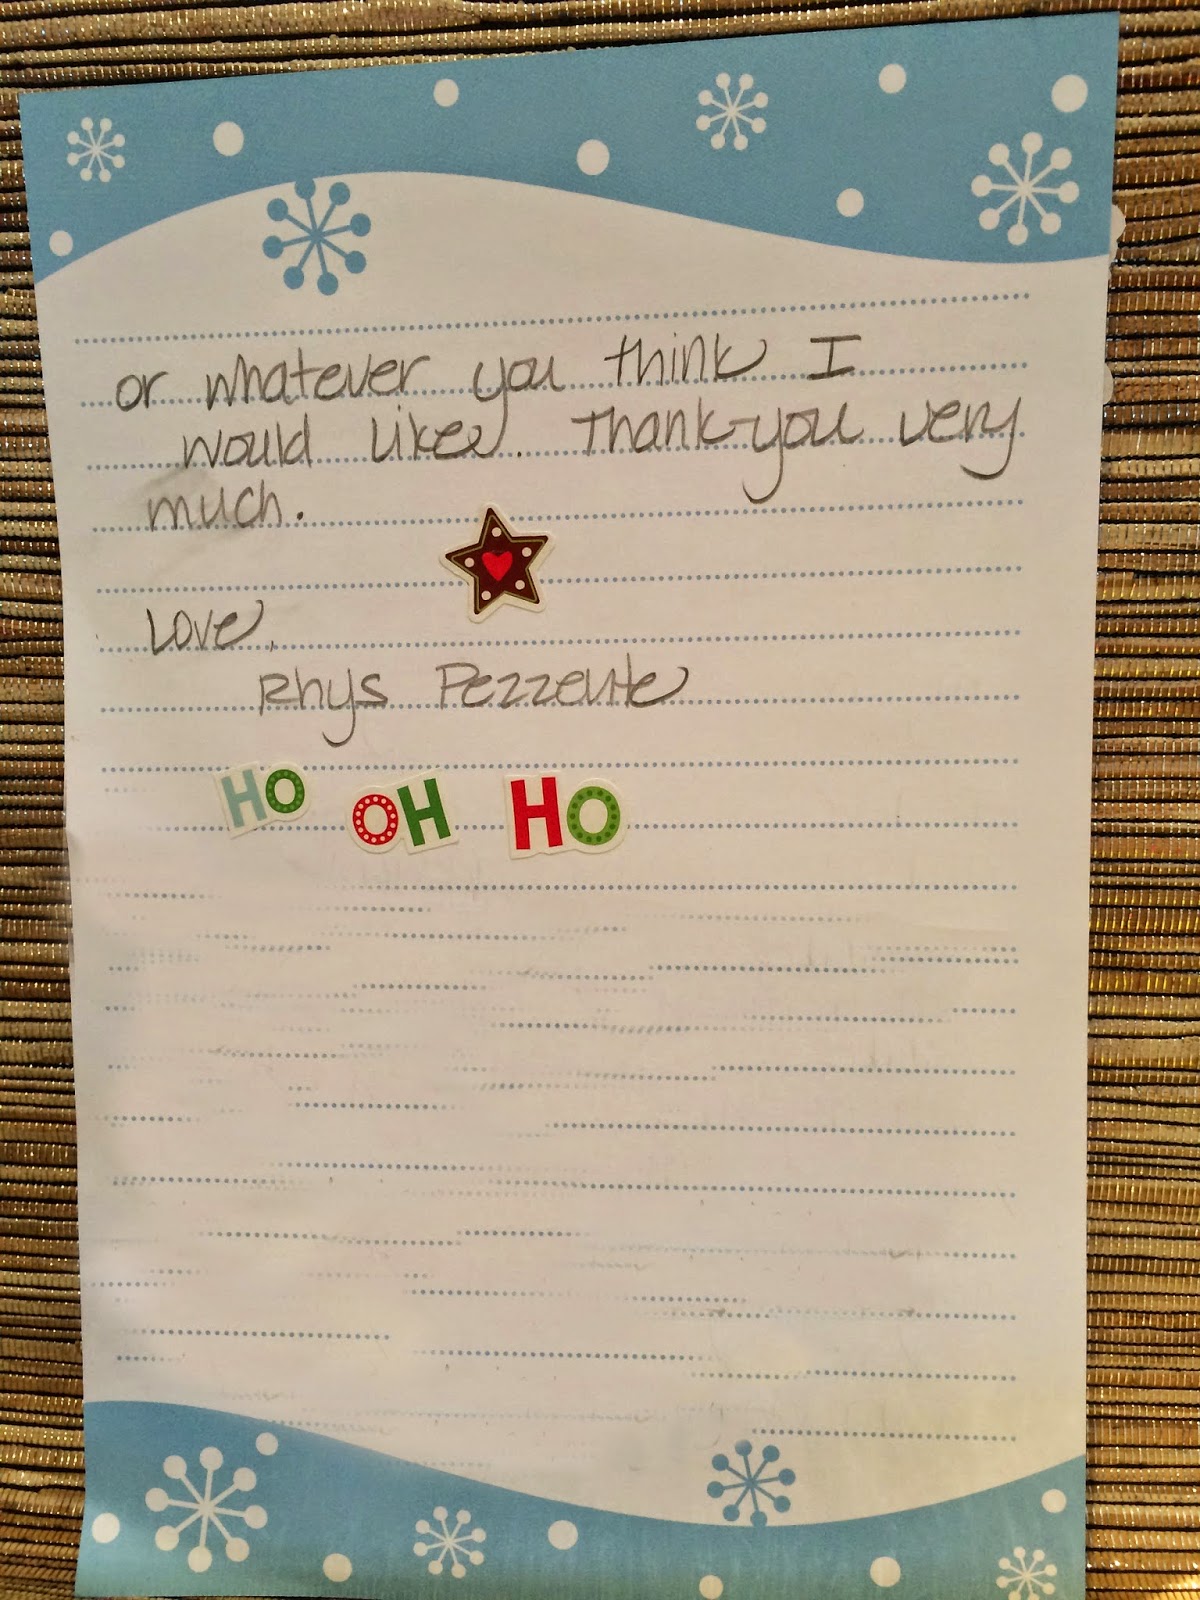 or whatever you think I
would like. Thank you very
much.
Love,
Rhys Pezzente
HO OH HO